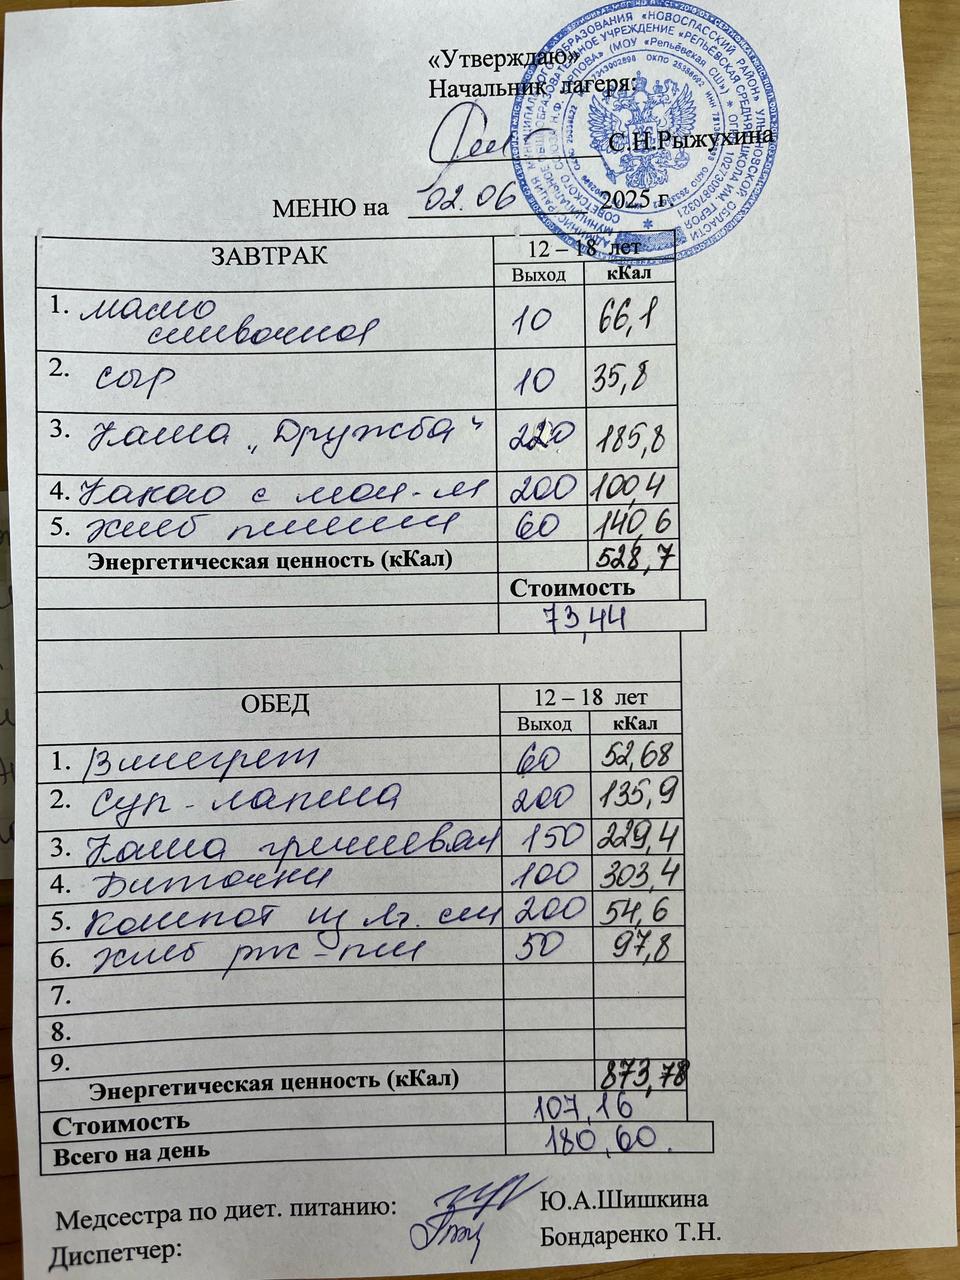 «Утверждаю»
Начальник лагеря:
С.Н.Рыжухина
МЕНЮ на 02.06 2025 г.
ЗАВТРАК 12 – 18 лет
Выход кКал
1. масло сливочное 10 66,1
2. сыр 10 35,8
3. Каша „Дружба" 220 185,8
4. Какао с мол-м 200 100,4
5. хлеб пшенич 60 140,6
Энергетическая ценность (кКал) 528,7
Стоимость
73,44
ОБЕД 12 – 18 лет
Выход кКал
1. Винегрет 60 52,68
2. Суп - лапша 200 135,9
3. Каша гречневая 150 229,4
4. Биточки 100 303,4
5. Компот из 200 54,6
6. хлеб рж - пш 50 97,8
7.
8.
9.
Энергетическая ценность (кКал) 873,78
Стоимость 107,16
Всего на день 180,60.
Медсестра по диет. питанию: Ю.А.Шишкина
Диспетчер: Бондаренко Т.Н.